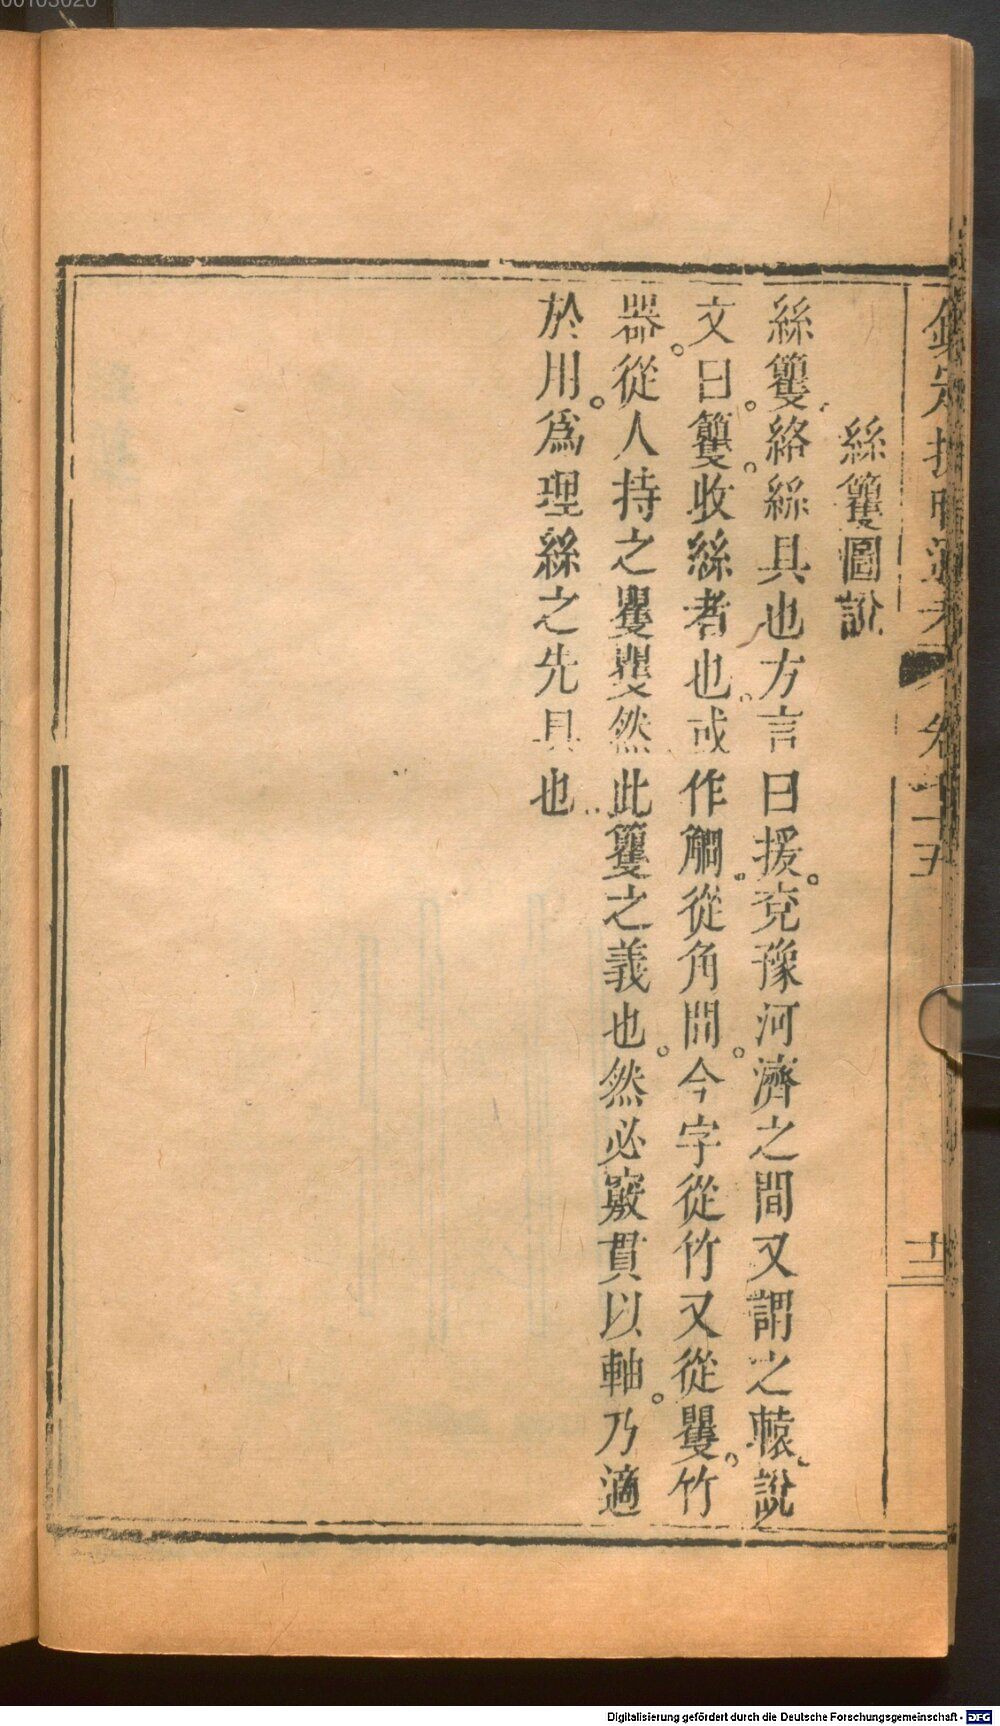 欽定授時通考 卷七十五 十二
絲籰圖說
絲籰。絡絲具也方言曰援。兗豫河濟之間又謂之轅。說
文曰。籰。收絲者也。或作䌉。從角間。今字從竹又從矍。竹
器。從人持之矍矍然此籰之義也。然必竅貫以軸。乃適
於用。爲理絲之先具也
Digitalisierung gefördert durch die Deutsche Forschungsgemeinschaft - DFG